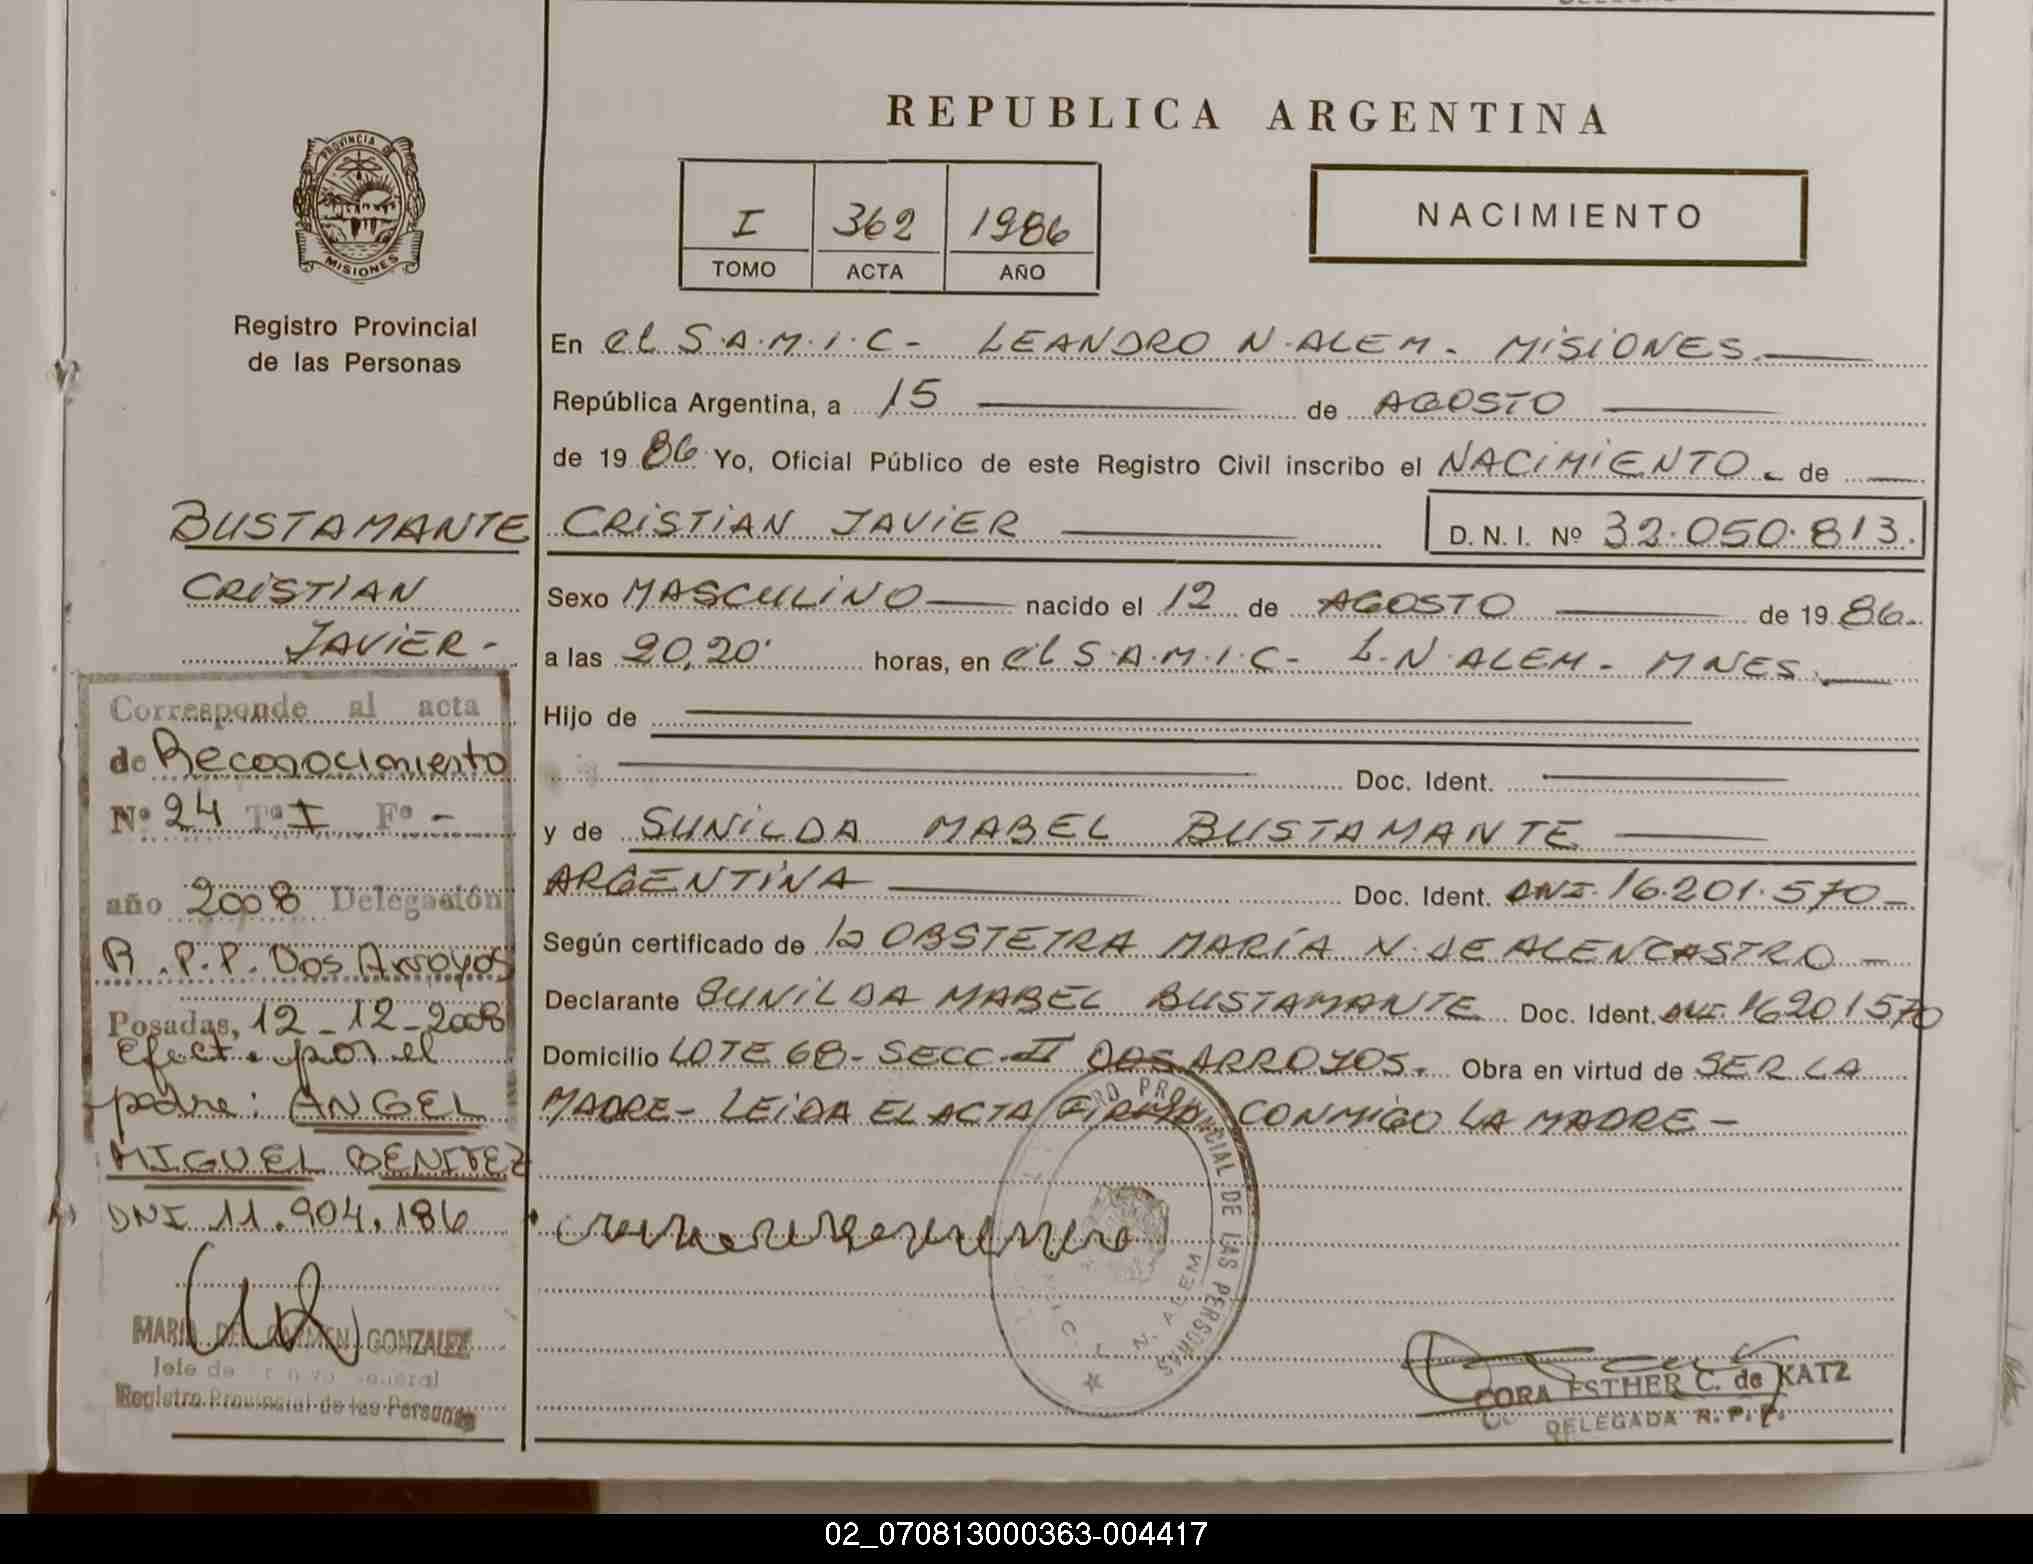 REPUBLICA ARGENTINA
PROVINCIA DE
MISIONES
Registro Provincial
de las Personas
I 362 1986
TOMO ACTA AÑO
NACIMIENTO
En el S.A.M.I.C- LEANDRO N.ALEM. MISIONES
República Argentina, a 15 de AGOSTO
de 1986 Yo, Oficial Público de este Registro Civil inscribo el NACIMIENTO. de
CRISTIAN JAVIER D. N. I. Nº 32.050.813.
Sexo MASCULINO nacido el 12 de AGOSTO de 1986.
a las 20,20' horas, en el S.A.M.I.C- L.N.ALEM- MNES.
Hijo de
Doc. Ident.
y de SUNILDA MABEL BUSTAMANTE
ARGENTINA Doc. Ident. DNI. 16.201.570-
Según certificado de la OBSTETRA MARÍA N. DE ALENCASTRO-
Declarante SUNILDA MABEL BUSTAMANTE Doc. Ident. DNI. 16201570
Domicilio LOTE 68- SECC-II DOS ARROYOS. Obra en virtud de SER LA
MADRE- LEIDA EL ACTA FIRMA CONMIGO LA MADRE-
BUSTAMANTE
CRISTIAN
JAVIER-
Corresponde al acta
de Reconocimiento
Nº 24 Tº I Fº -
año 2008 Delegación
R.P.P. Dos Arroyos
Posadas, 12-12-2008
Efect. por el
padre: ANGEL
MIGUEL BENITEZ
DNI 11.904.186
MARIA DEL CARMEN GONZALEZ
Jefe de
Registro Provincial de las Personas
PROVINCIAL DE LAS PERSONAS
N. ALEM
CORA ESTHER C. de KATZ
DELEGADA R. P. P.
02_070813000363-004417